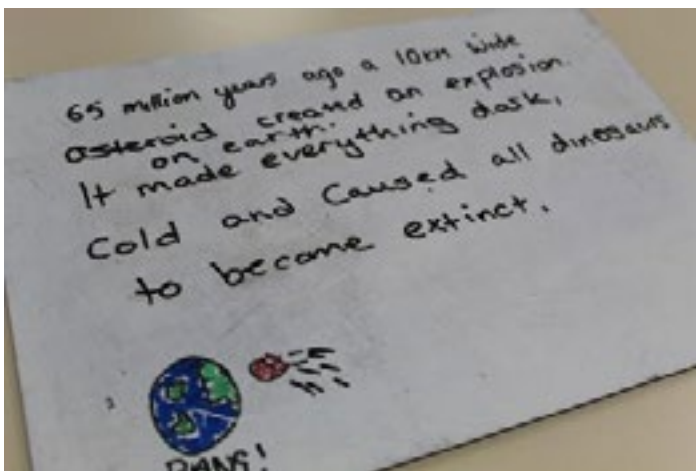 65 million years ago a 10km wide
asteroid created an explosion
on earth.
It made everything dark,
Cold and Caused all dinosaurs
to become extinct.
BANG!